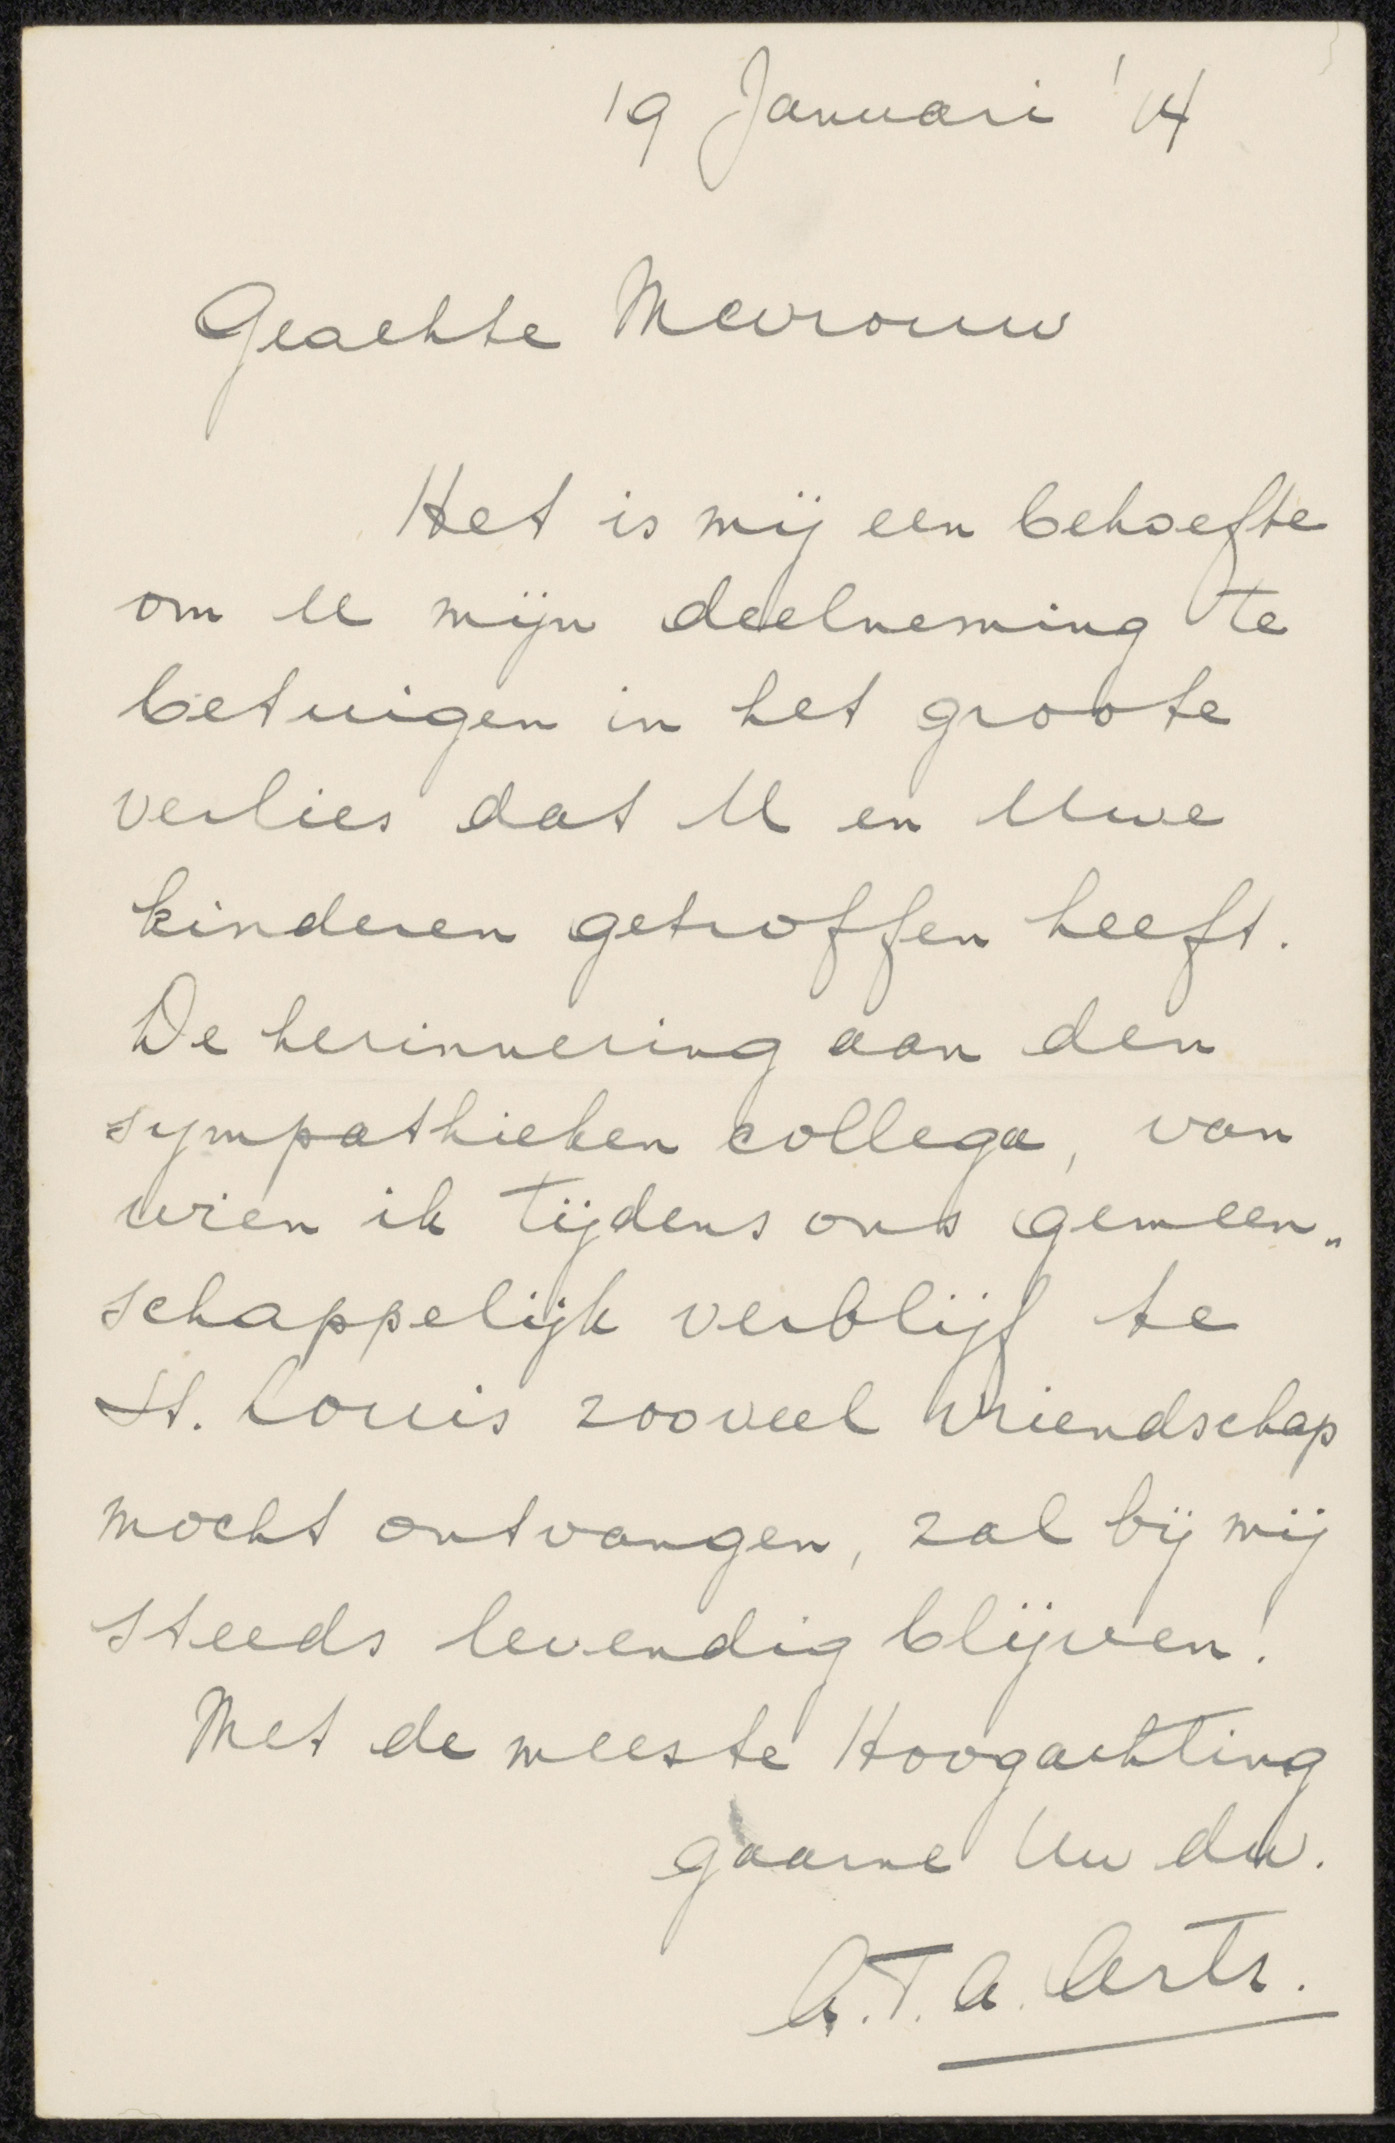 19 Januari '14
Geachte Mevrouw
Het is mij een behoefte
om U mijn deelneming te
betuigen in het groote
verlies dat U en Uwe
kinderen getroffen heeft.
De herinnering aan den
sympathieken collega, van
wien ik tijdens ons gemeen„
schappelijk verblijf te
St. Louis zooveel vriendschap
mocht ontvangen, zal bij mij
steeds levendig blijven!
Met de meeste Hoogachting
gaarne Uw dw.
A.T.A. Arts.